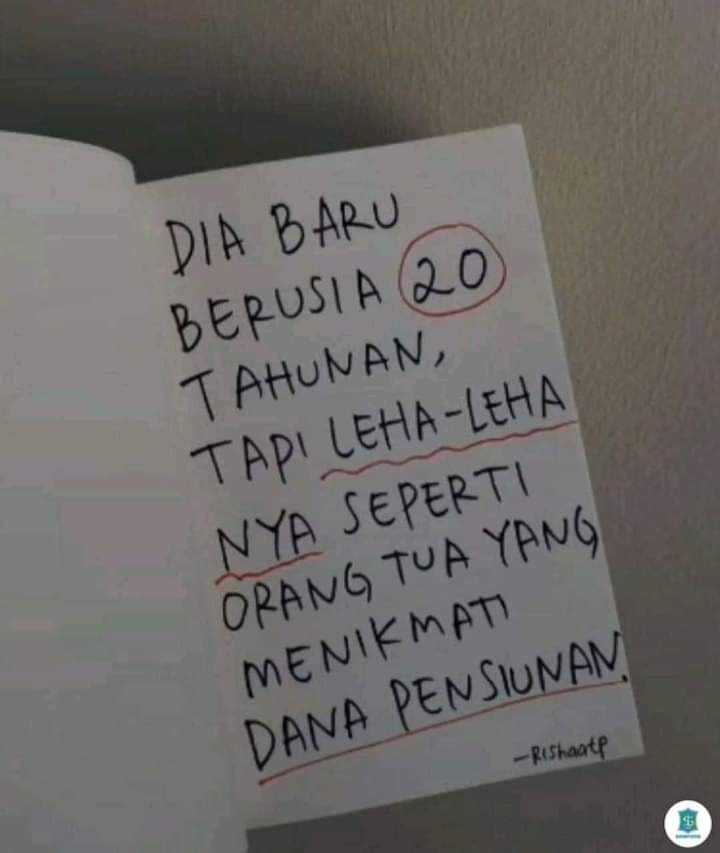 DIA BARU
BERUSIA 20
TAHUNAN,
TAPI LEHA-LEHA
NYA SEPERTI
ORANG TUA YANG
MENIKMATI
DANA PENSIUNAN.
-Rishaatp